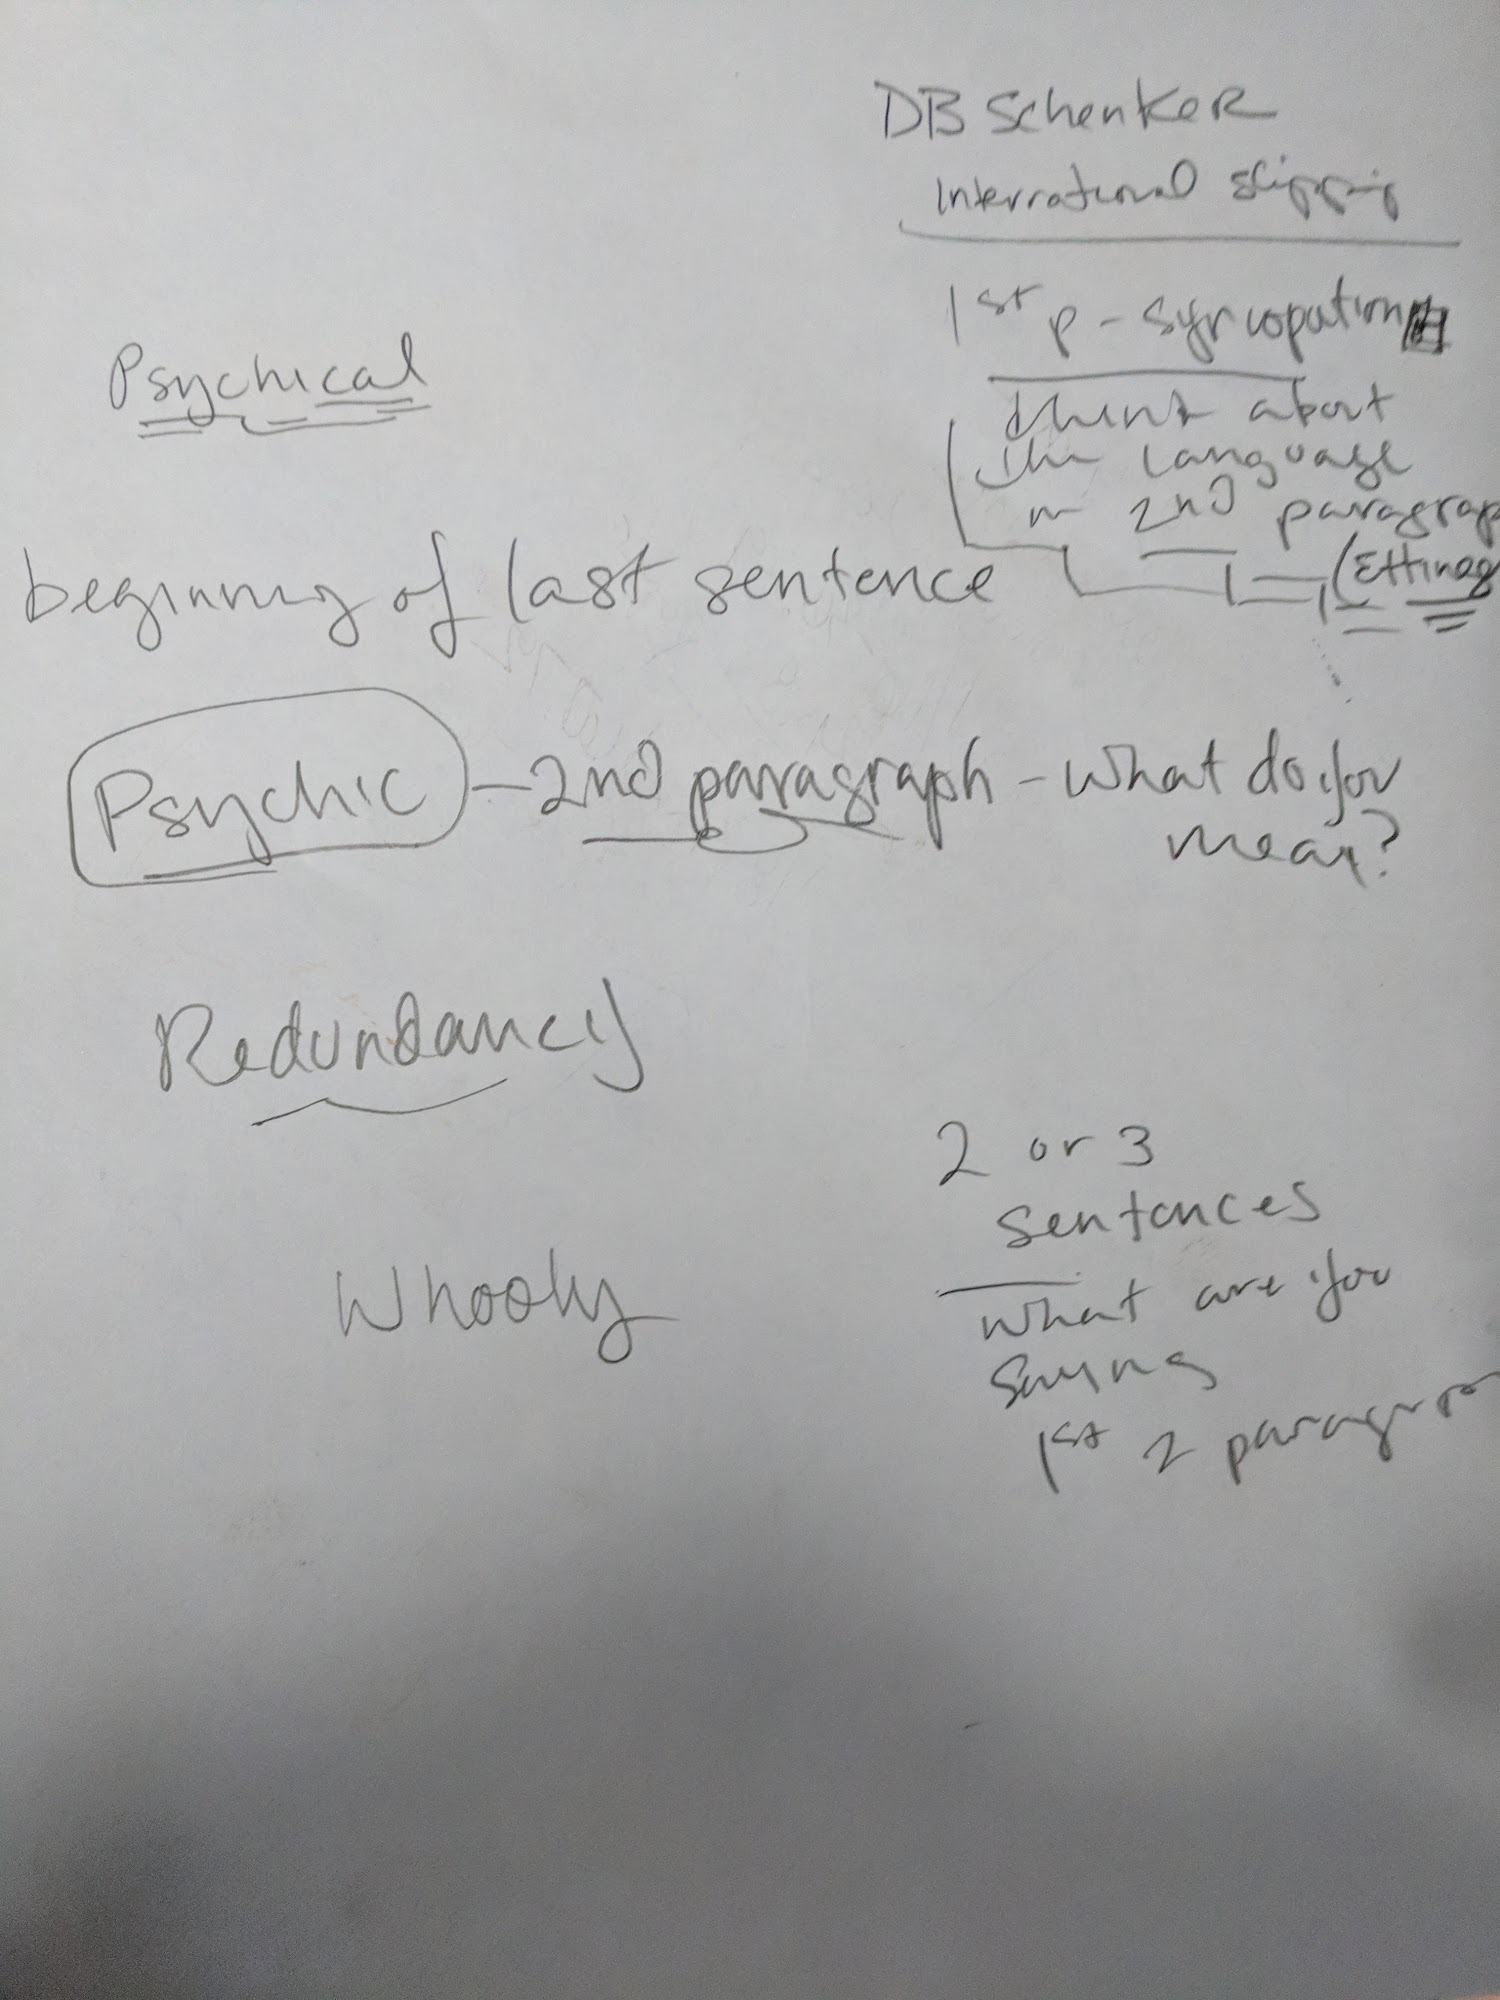 DB Schenker
International shipping
1st p - syncopation
think about
the language
in 2nd paragrap
(Etting
Psychical
beginning of last sentence
Psychic - 2nd paragraph - what do you
mean?
Redundancy
2 or 3
sentences
what are you
saying
1st 2 paragrap
Whooly